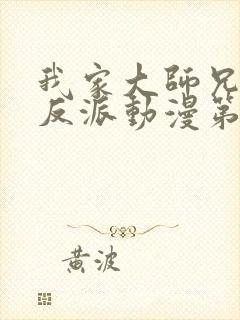 我家大師兄
反派動漫第
黃波